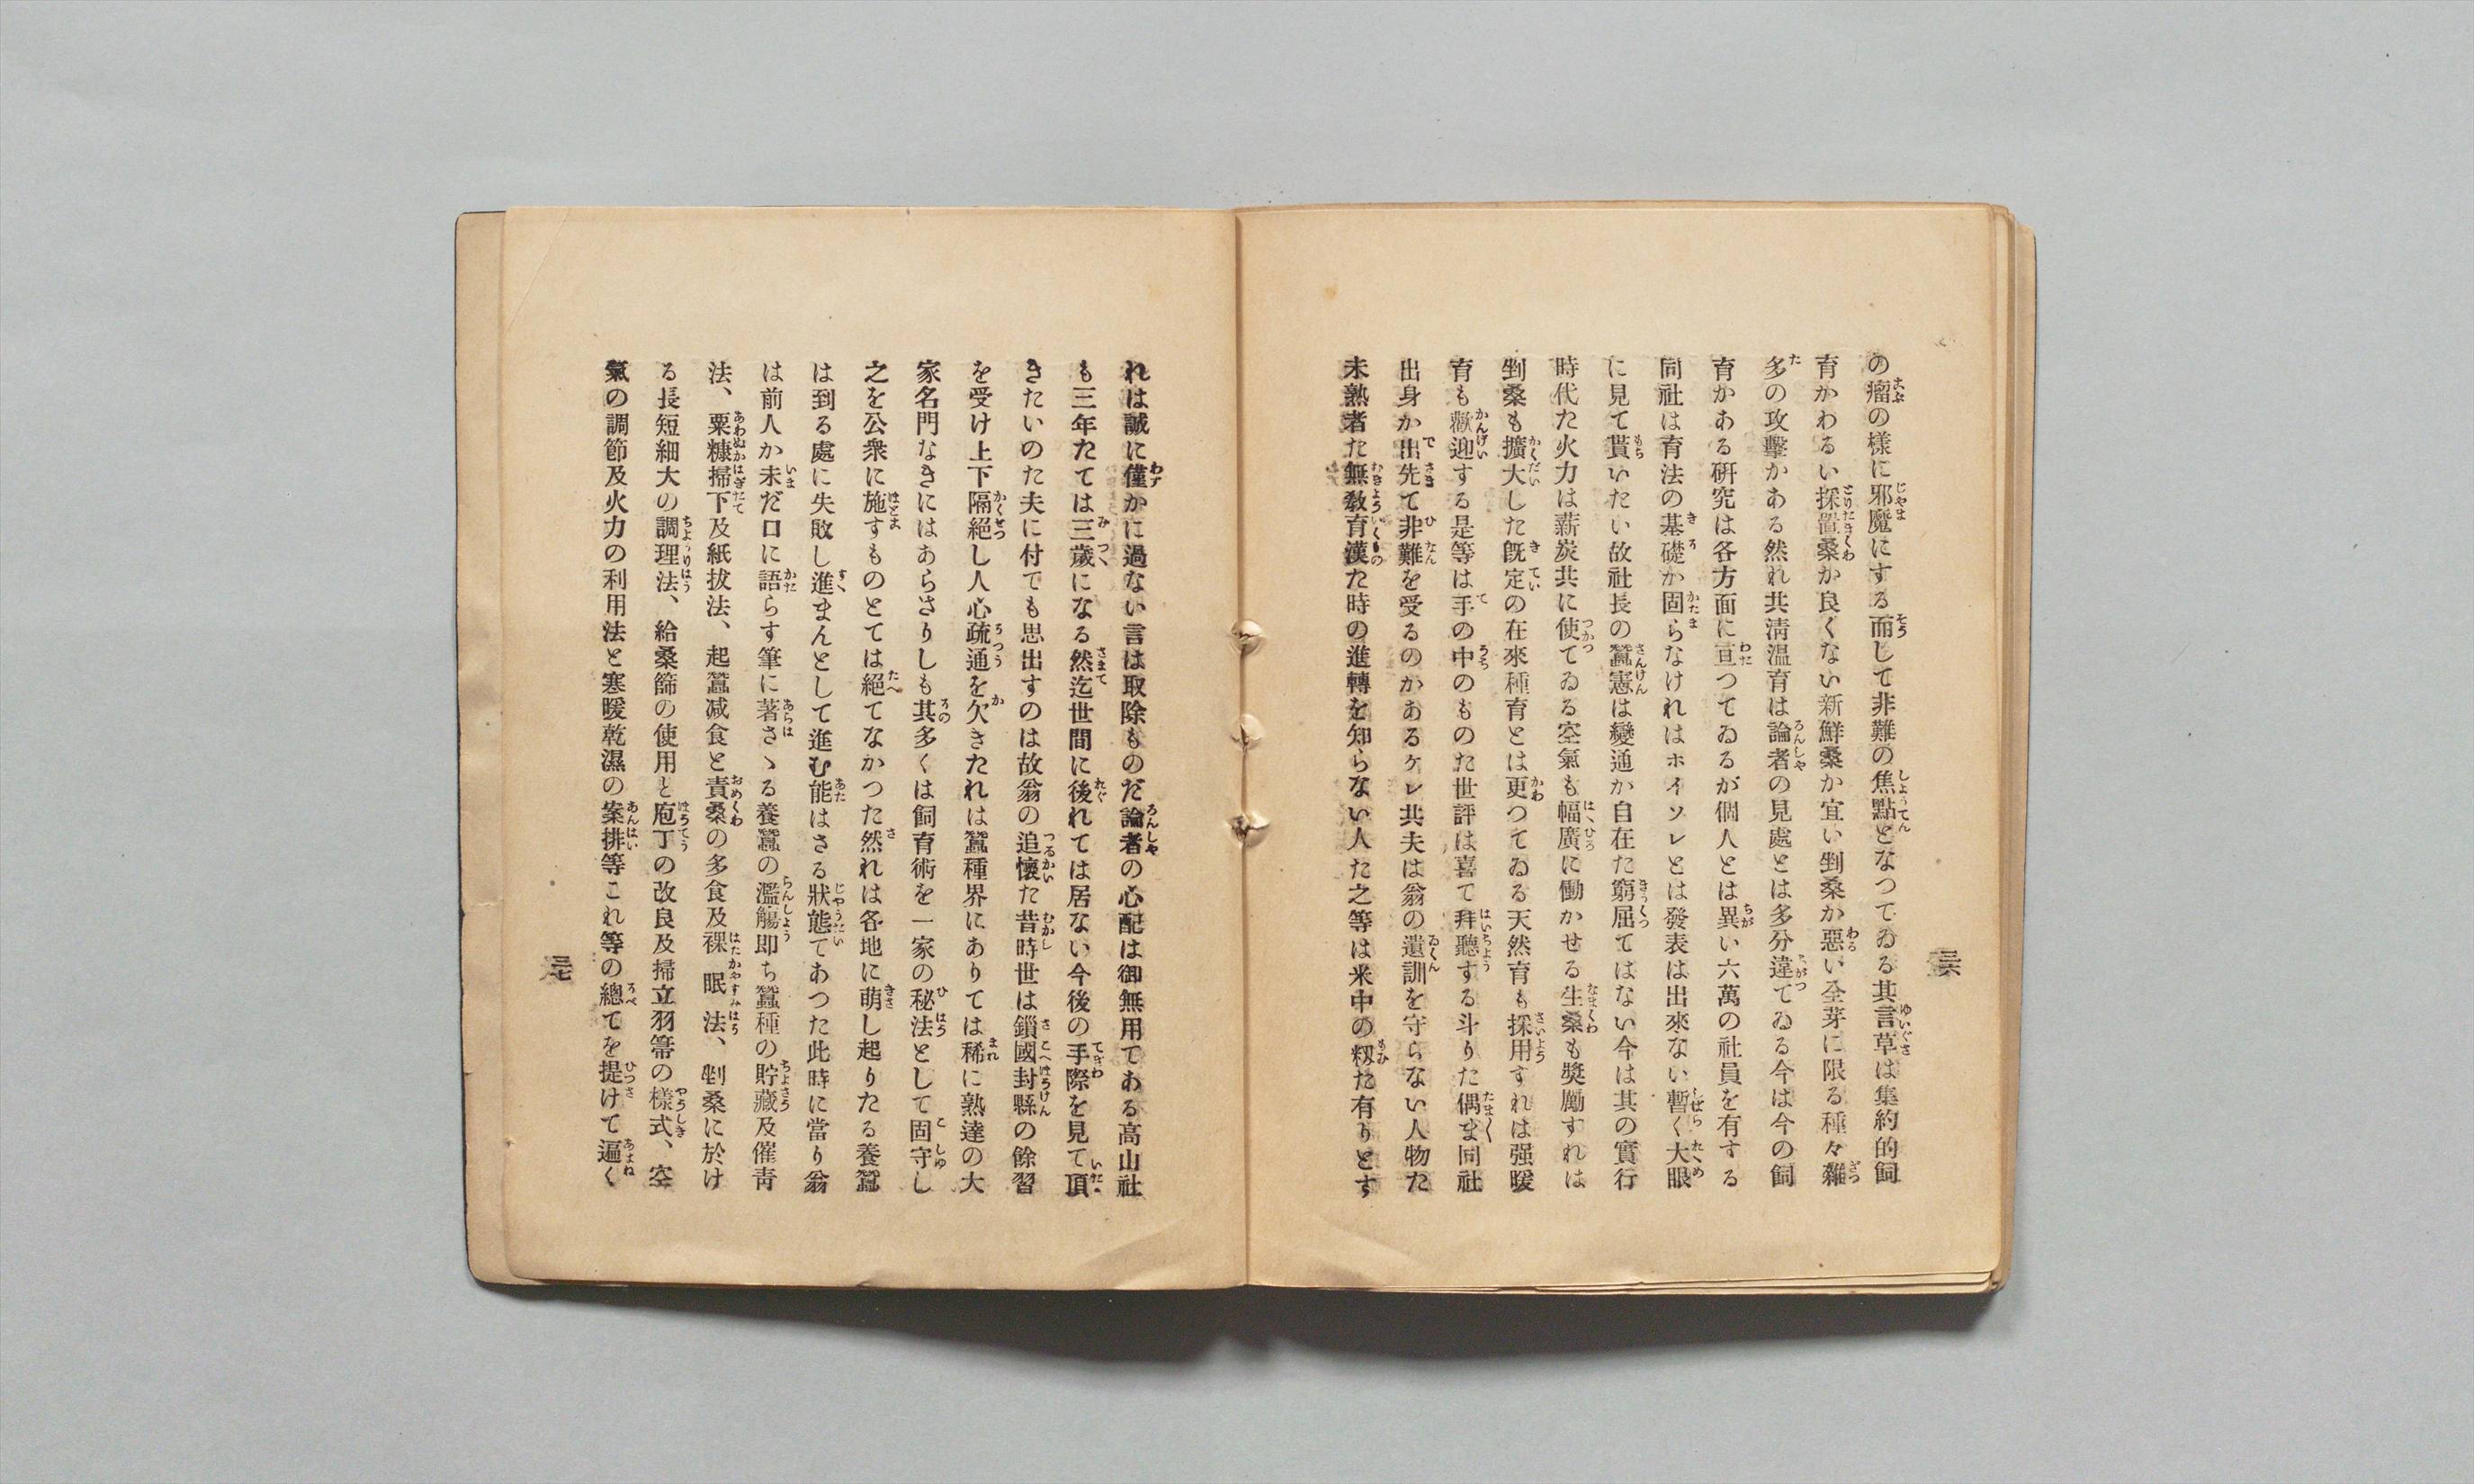 の瘤の様に邪魔にする而して非難の焦點となつてゐる其言草は集約的飼
育かわるい採置桑か良くない新鮮桑か宜い剉桑か惡い全芽に限る種々雜
多の攻擊かある然れ共淸溫育は論者の見處とは多分違てゐる今は今の飼
育かある硏究は各方面に亘つてゐるが個人とは異い六萬の社員を有する
同社は育法の基礎か固らなけれはホイソレとは發表は出來ない暫く大眼
に見て貰いたい故社長の蠶憲は變通か自在た窮屈てはない今は其の實行
時代た火力は薪炭共に使てゐる空氣も幅廣に働かせる生桑も奬勵すれは
剉桑も擴大した旣定の在來種育とは更つてゐる天然育も採用すれは强暖
育も歡迎する是等は手の中のものた世評は喜て拜聽する斗りた偶ま同社
出身か出先て非難を受るのかあるケレ共夫は翁の遺訓を守らない人物た
未熟者た無敎育漢た時の進轉を知らない人た之等は米中の籾た有りとす
三六
れは誠に僅かに過ない言は取除ものだ論者の心配は御無用てある高山社
も三年たては三歲になる然迄世間に後れては居ない今後の手際を見て頂
きたいのた夫に付ても思出すのは故翁の追懷た昔時世は鎖國封縣の餘習
を受け上下隔絕し人心疏通を欠きたれは蠶種界にありては稀に熟達の大
家名門なきにはあらさりしも其多くは飼育術を一家の秘法として固守し
之を公衆に施すものとては絕てなかつた然れは各地に萌し起りたる養蠶
は到る處に失敗し進まんとして進む能はさる狀態てあつた此時に當り翁
は前人か未だ口に語らす筆に著さゝる養蠶の濫觴卽ち蠶種の貯藏及催靑
法、粟糠掃下及紙拔法、起蠶減食と責桑の多食及裸眠法、剉桑に於け
る長短細大の調理法、給桑篩の使用と庖丁の改良及掃立羽箒の樣式、空
氣の調節及火力の利用法と寒暖乾濕の案排等これ等の總てを提けて遍く
三七